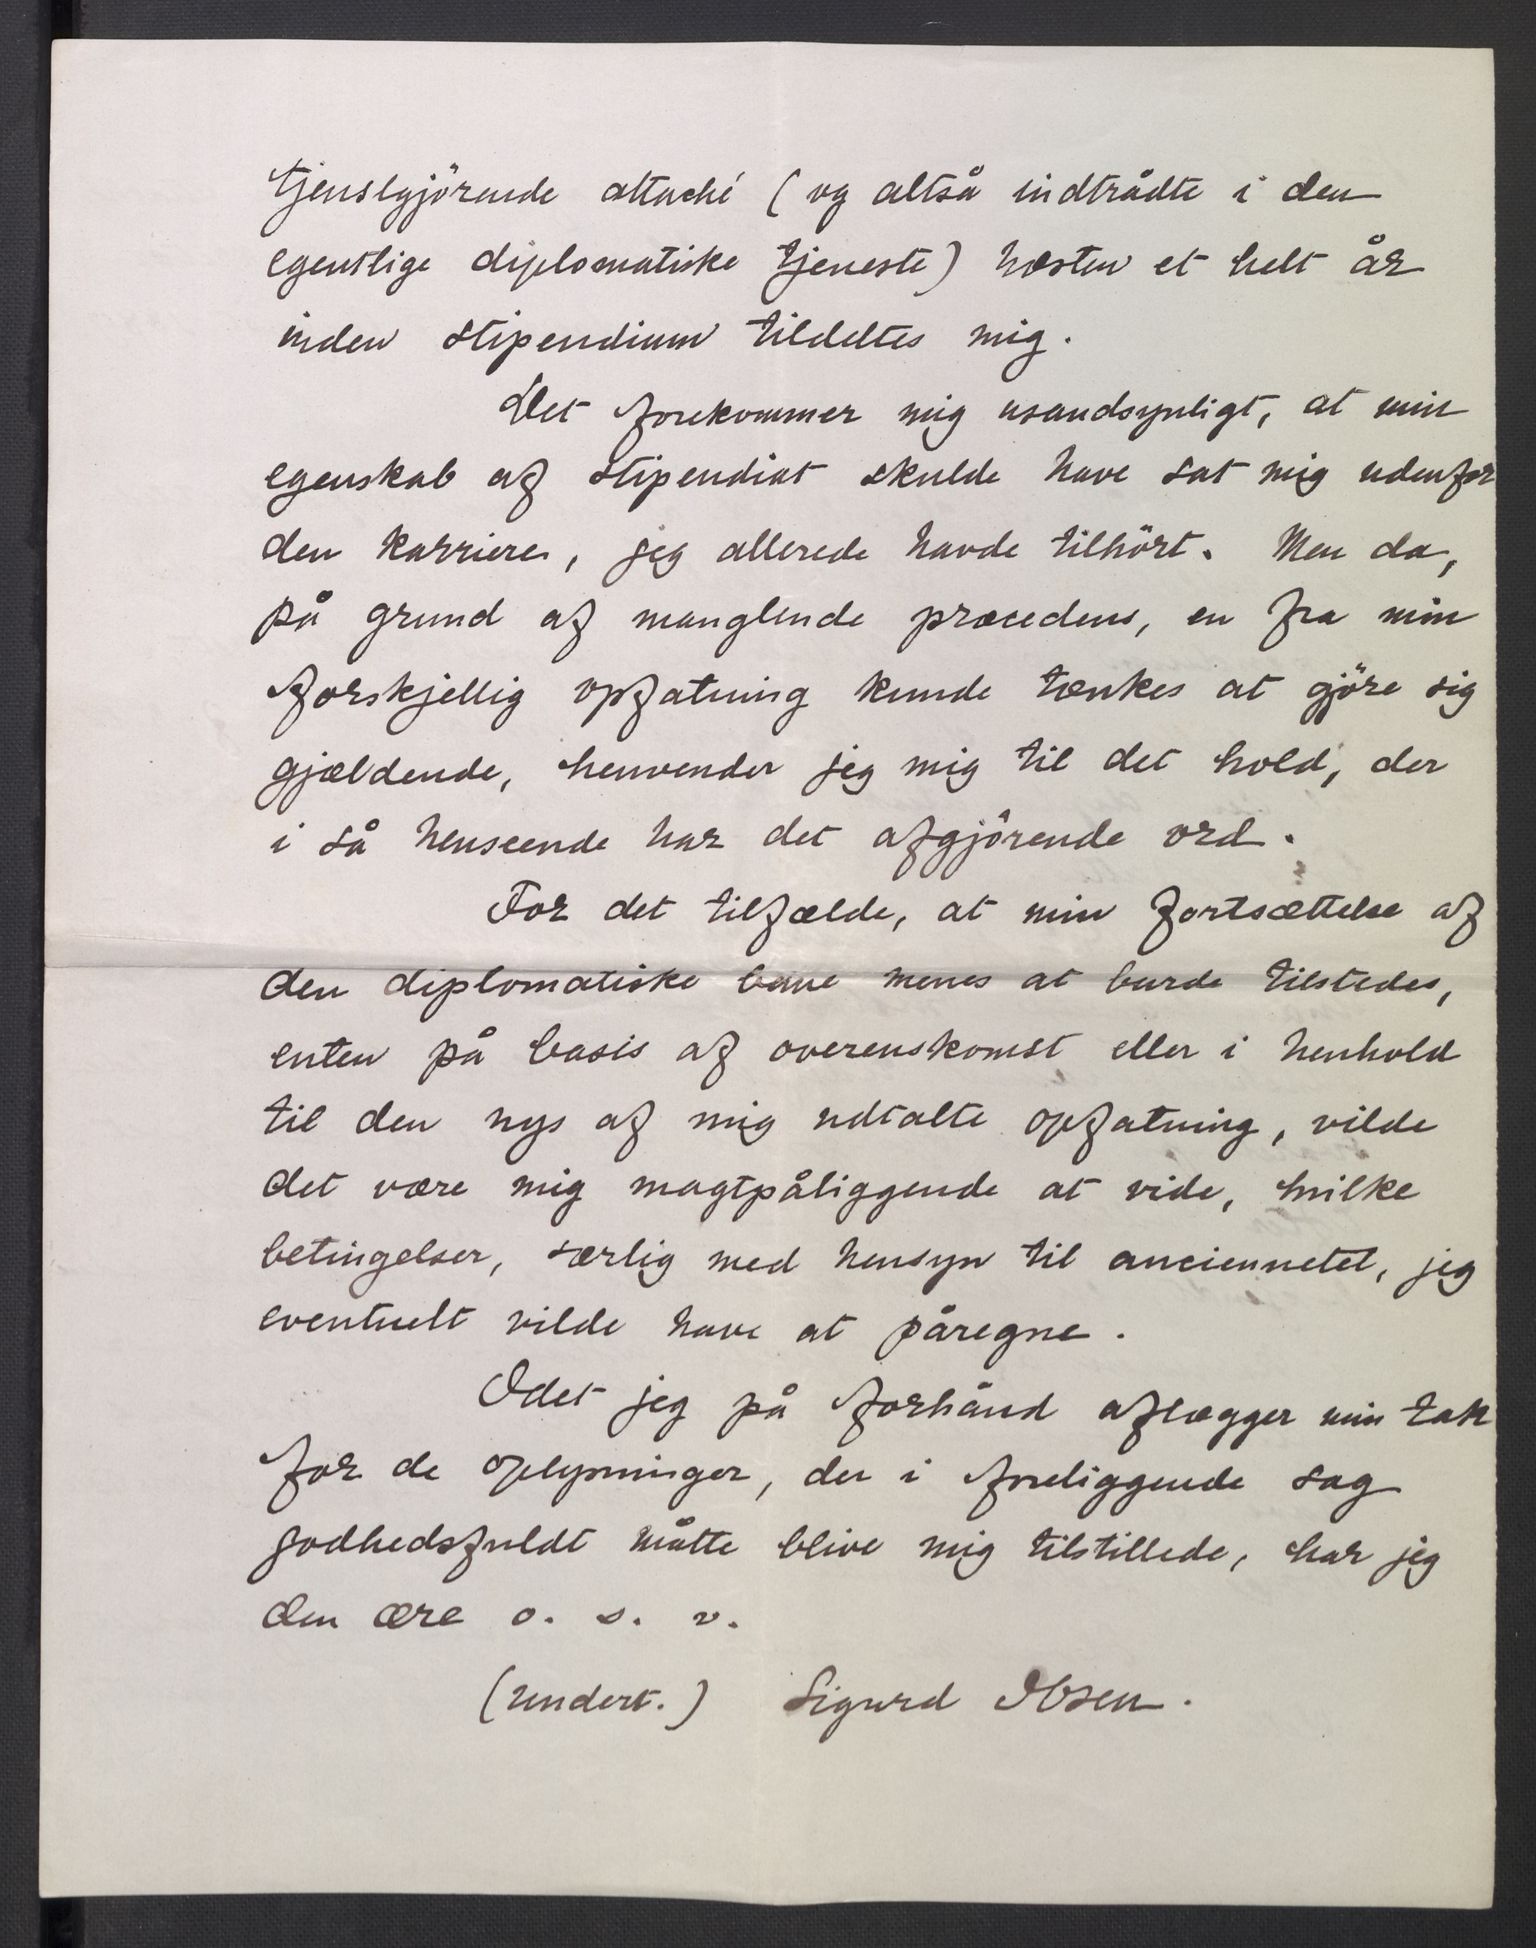 tjenstgjörende attaché (og altså indtrådte i den
egentlige diplomatiske tjeneste) næsten et helt år
inden stipendium tildeltes mig.
Det forekommer mig usandsynligt, at min
egenskab af stipendiat skulde have sat mig udenfor
den karriere, jeg allerede havde tilhört. Men da,
på grund af manglende præcedens, en fra min
forskjellig opfatning kunde tænkes at gjöre sig
gjældende, henvender jeg mig til det hold, der
i så henseende har det afgjörende ord.
For det tilfælde, at min fortsættelse af
den diplomatiske bane menes at burde tilstedes,
enten på basis af overenskomst eller i henhold
til den nys af mig udtalte opfatning, vilde
det være mig magtpåliggende at vide, hvilke
betingelser, særlig med hensyn til anciennetet, jeg
eventuelt vilde have at påregne.
Idet jeg på forhånd aflægger min tak
for de oplysninger, der i foreliggende sag
godhedsfuldt måtte blive mig tilstillede, har jeg
den ære o. s. v.
(undert.) Sigurd Ibsen.